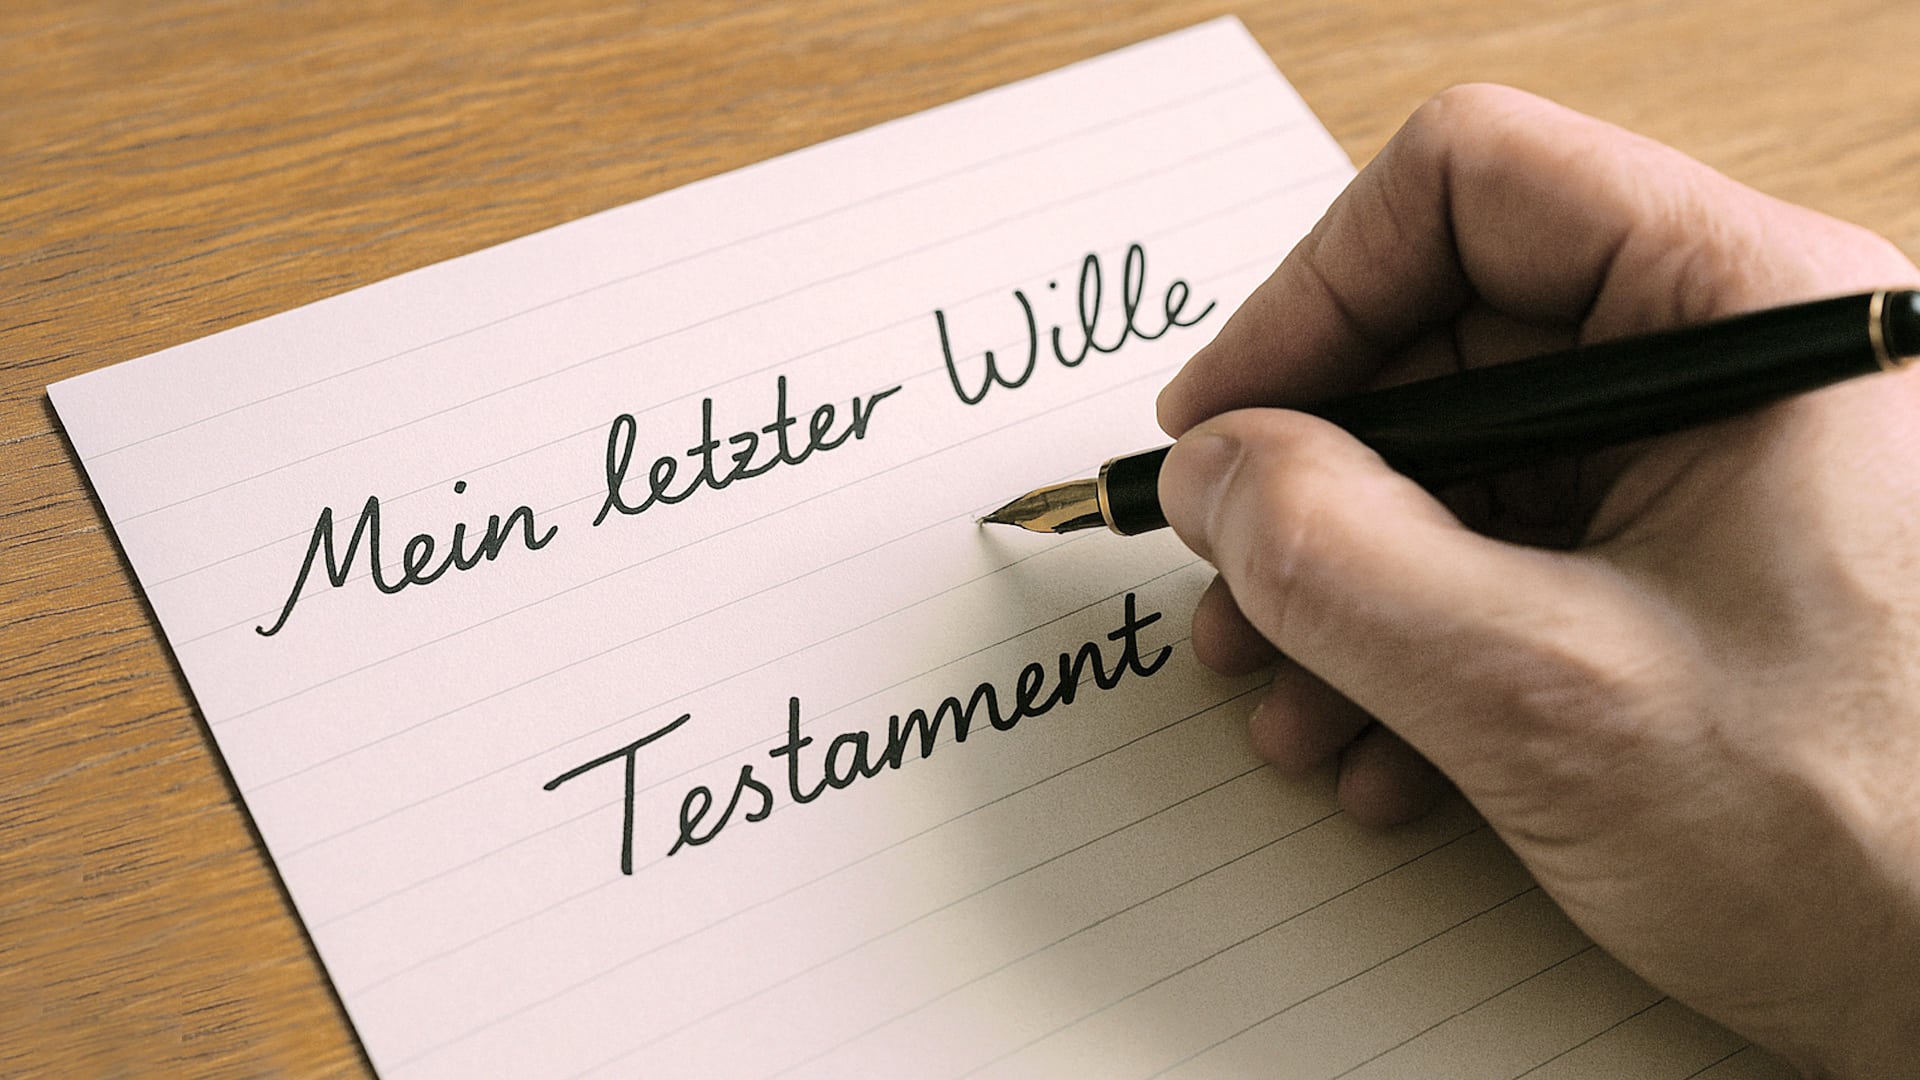 Mein letzter Wille
Testament